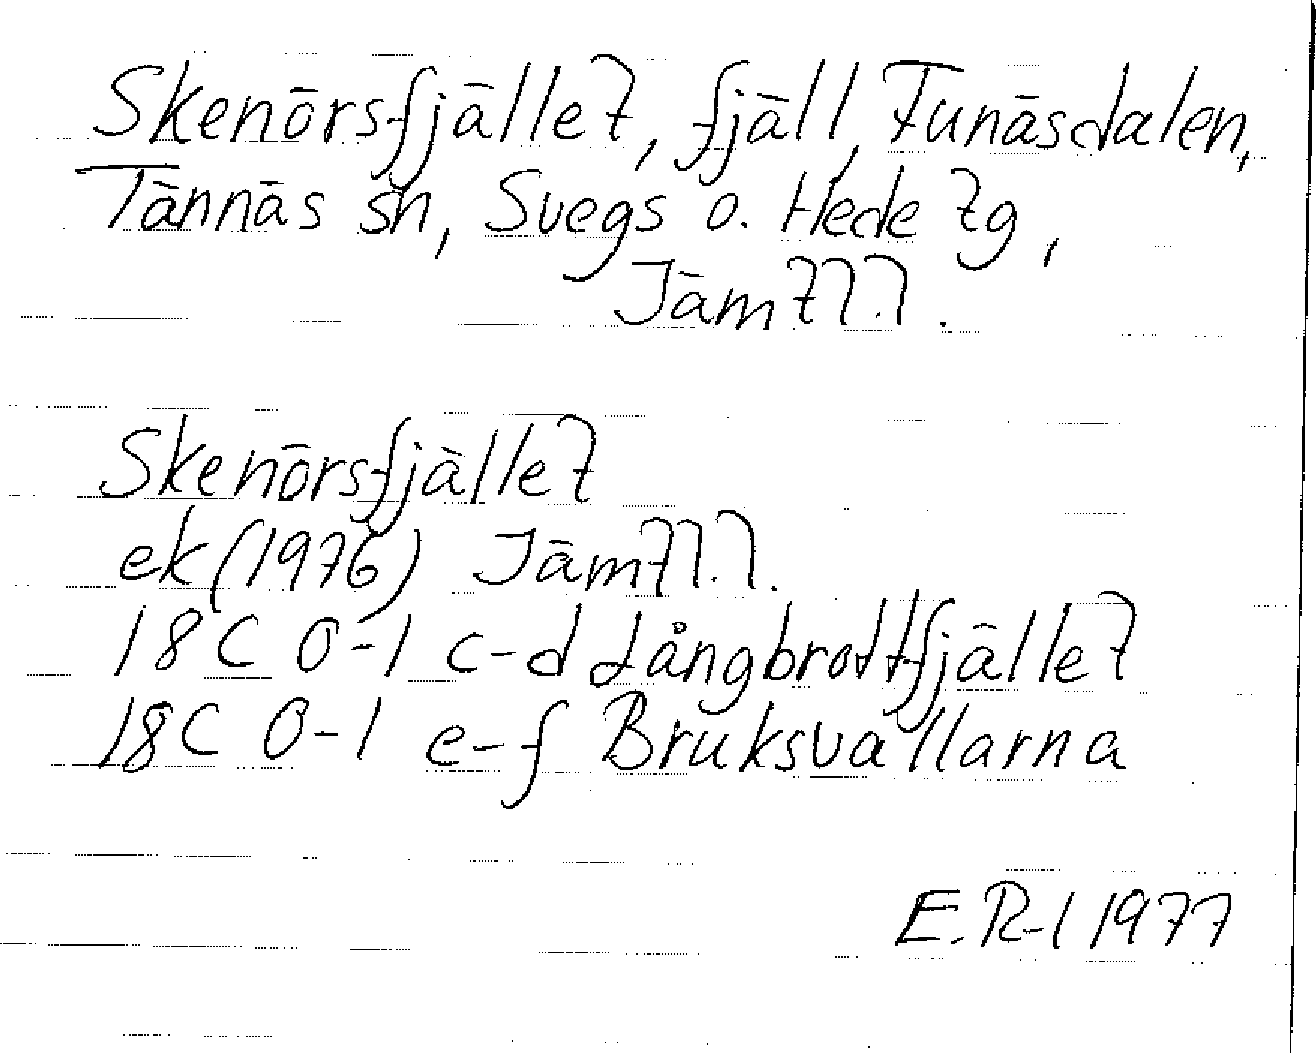 Skenörsfjället, fjäll, Funäsdalen,
Tännäs sn, Svegs o. Hede tg,
Jämtl.l.
Skenörsfjället
ek (1976) Jämtl.l.
18C 0-1 c-d Långbrottfjället
18C 0-1 e-f Bruksvallarna
E. R-l 1977